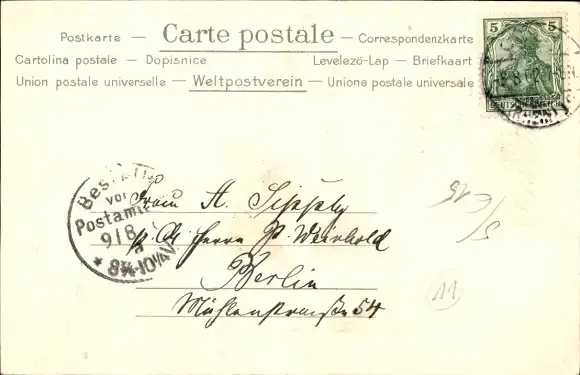 Postkarte — Carte postale — Correspondenzkarte
Cartolina postale — Dopisnice Levelezö-Lap — Briefkaart
Union postale universelle — Weltpostverein — Unione postale universale
5 5
DEUTSCHES REICH
Bestellt
vom
Postamte
9/8
8¼-10½V
Frau A.
p. Ad. Herrn P. Weinhold
Berlin
Mühlenstraße 54
11